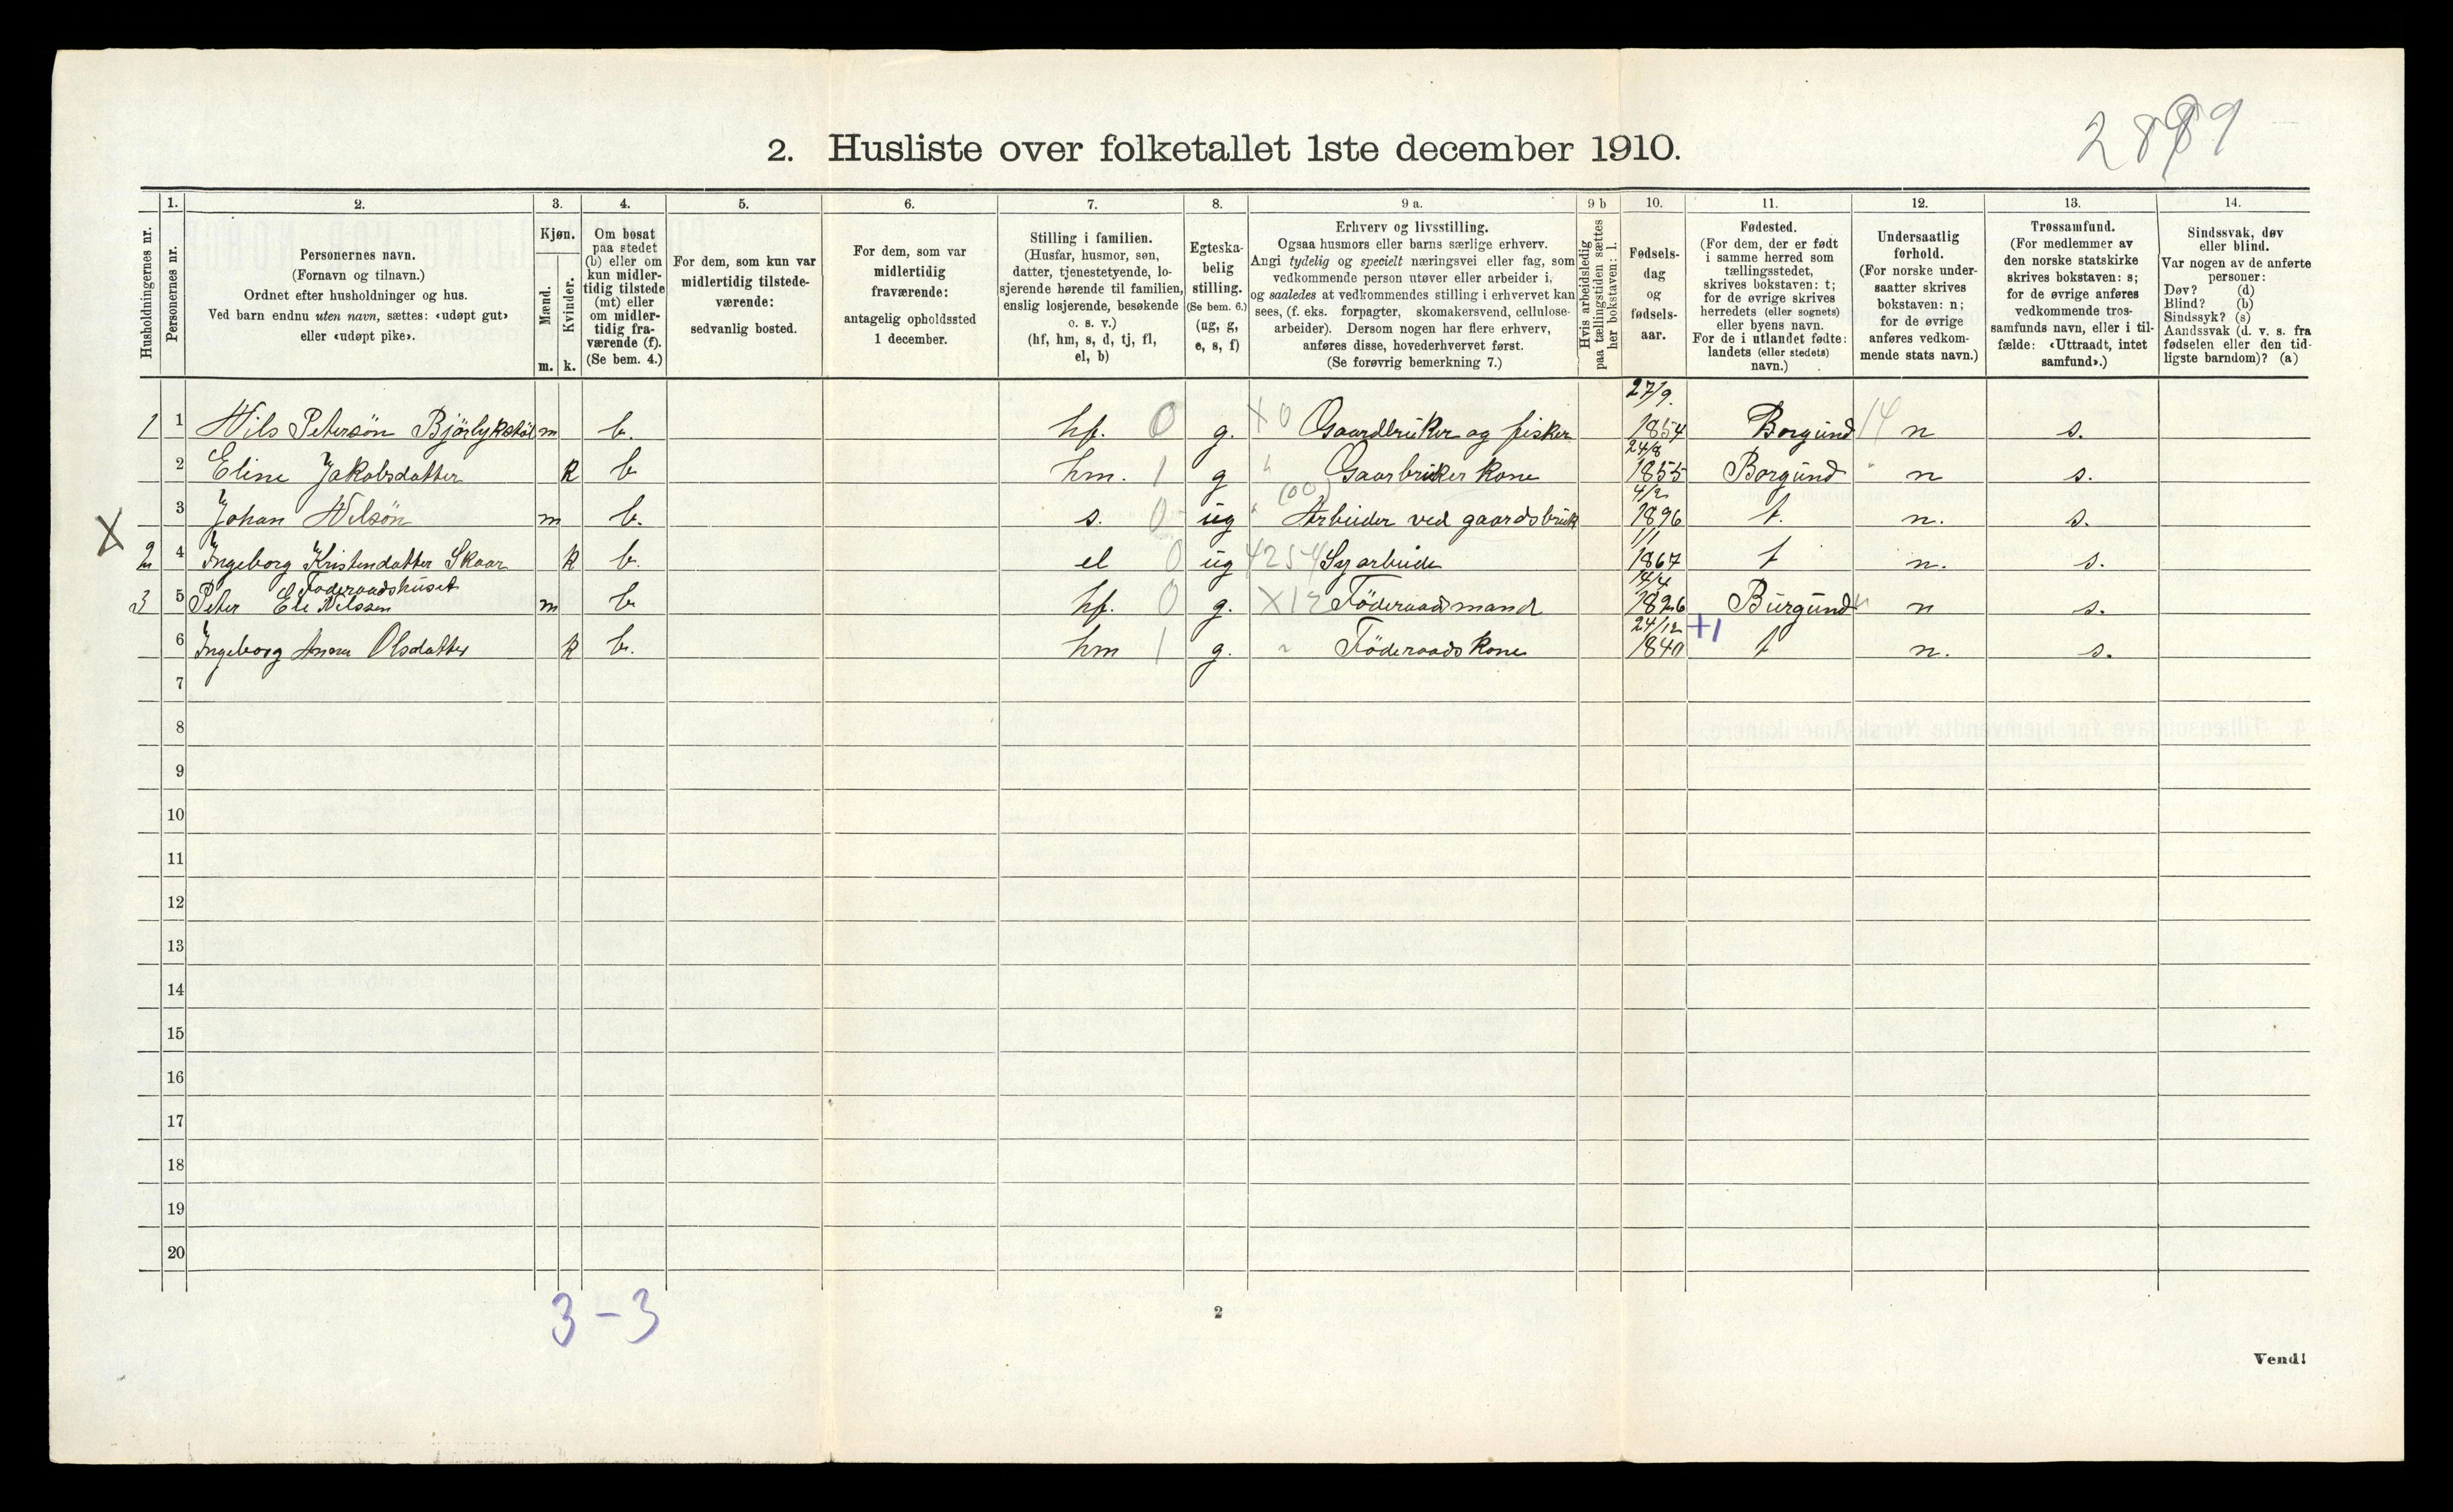 2889
2. Husliste over folketallet 1ste december 1910.
Husholdningernes nr.
1. Personernes nr.
2. Personernes navn.
(Fornavn og tilnavn.)
Ordnet efter husholdninger og hus.
Ved barn endnu uten navn, sættes: «udøpt gut»
eller «udøpt pike».
3. Kjøn.
Mænd. Kvinder.
m. k.
4. Om bosat
paa stedet
(b) eller om
kun midler-
tidig tilstede
(mt) eller
om midler-
tidig fra-
værende (f).
(Se bem. 4.)
5. For dem, som kun var
midlertidig tilstede-
værende:
sedvanlig bosted.
6. For dem, som var
midlertidig
fraværende:
antagelig opholdssted
1 december.
7. Stilling i familien.
(Husfar, husmor, søn,
datter, tjenestetyende, lo-
sjerende hørende til familien,
enslig losjerende, besøkende
o. s. v.)
(hf, hm, s, d, tj, fl,
el, b)
8. Egteska-
belig
stilling.
(Se bem. 6.)
(ug, g,
e, s, f)
9 a. Erhverv og livsstilling.
Ogsaa husmors eller barns særlige erhverv.
Angi tydelig og specielt næringsvei eller fag, som
vedkommende person utøver eller arbeider i,
og saaledes at vedkommendes stilling i erhvervet kan
sees, (f. eks. forpagter, skomakersvend, cellulose-
arbeider). Dersom nogen har flere erhverv,
anføres disse, hovederhvervet først.
(Se forøvrig bemerkning 7.)
9 b Hvis arbeidsledig
paa tællingstiden sættes
her bokstaven: l.
10. Fødsels-
dag
og
fødsels-
aar.
11. Fødested.
(For dem, der er født
i samme herred som
tællingsstedet,
skrives bokstaven: t;
for de øvrige skrives
herredets (eller sognets)
eller byens navn.
For de i utlandet fødte:
landets (eller stedets)
navn.)
12. Undersaatlig
forhold.
(For norske under-
saatter skrives
bokstaven: n;
for de øvrige
anføres vedkom-
mende stats navn.)
13. Trossamfund.
(For medlemmer av
den norske statskirke
skrives bokstaven: s;
for de øvrige anføres
vedkommende tros-
samfunds navn, eller i til-
fælde: «Uttraadt, intet
samfund».)
14. Sindssvak, døv
eller blind.
Var nogen av de anførte
personer:
Døv? (d)
Blind? (b)
Sindssyk? (s)
Aandssvak (d. v. s. fra
fødselen eller den tid-
ligste barndom)? (a)
27/9
1 1 Nils Petersön m b. hf. 0 g. X 0 Gaardbruker og fisker 1854 Borgund 14 n s.
24/8
2 Eline Jakobsdatter k b hm. 1 g " Gaarbruker kone 1855 Borgund " n s.
(00) 4/2
3 Johan Nilsön m b. s. 0 ug " Arbeider ved gaardsbruk 1896 t. n. s.
X 1/1
2 4 Ingeborg Kristendatter Skaar k b. el 0 ug 4254 Syarbeide 1867 t n. s.
Föderaadshuset 14/4
3 5 Peter Nilssen m b hf. 0 g. X12 Föderaadsmand 1826 Burgund " n s.
24/12 +1
6 Ingeborg Anna Olsdatter k b. hm 1 g. " Föderaadskone 1840 t n. s.
7
8
9
10
11
12
13
14
15
16
17
18
19
20
3 - 3
2
Vend!